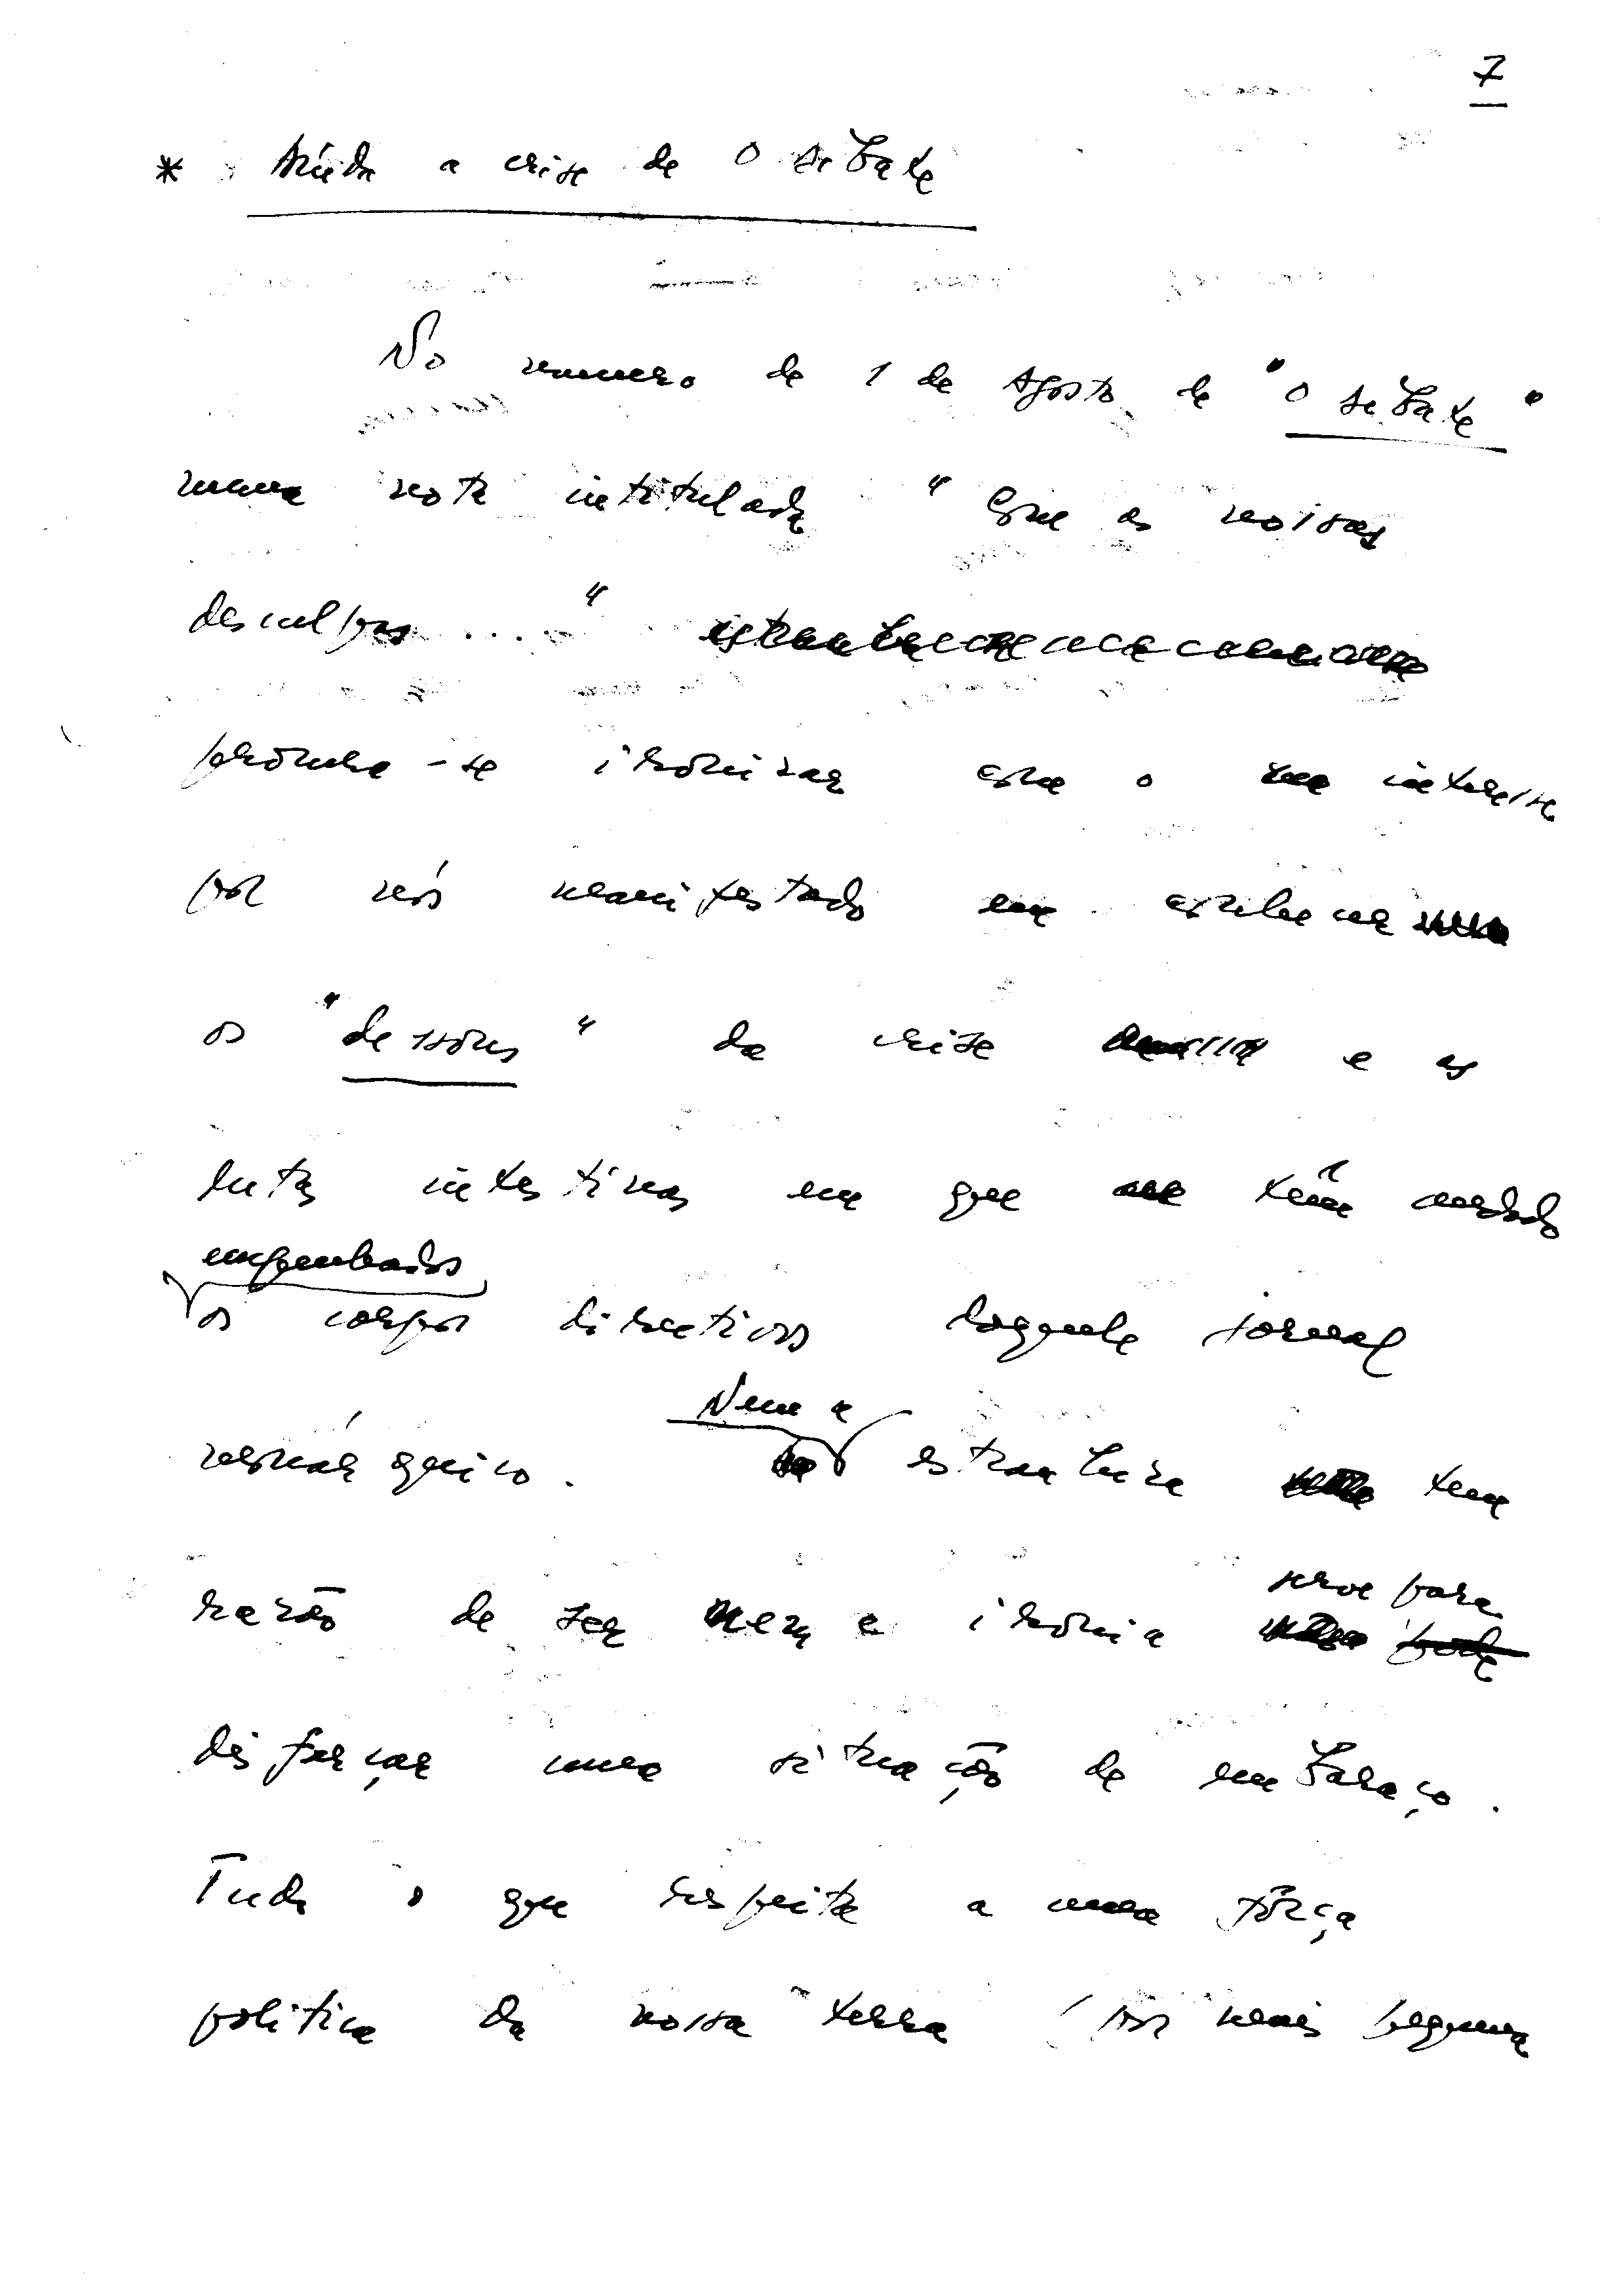 7
* Ainda a crise de O debate
No numero de 1 de Agosto de "O debate"
numa nota intitulada "Com as nossas
desculpas...."
procura-se ironizar com o interesse
por nós manifestado em esclarecer
os "dessous" da crise e as
lutas intestinas em que têm andado
engalfinhados
os corpos directivos daquele jornal
monárquico. Nem a estranheza tem
razão de ser nem a ironia serve para
disfarçar uma situação de embaraço.
Tudo o que respeita a uma fôrça
politica da nossa terra (por mais pequena